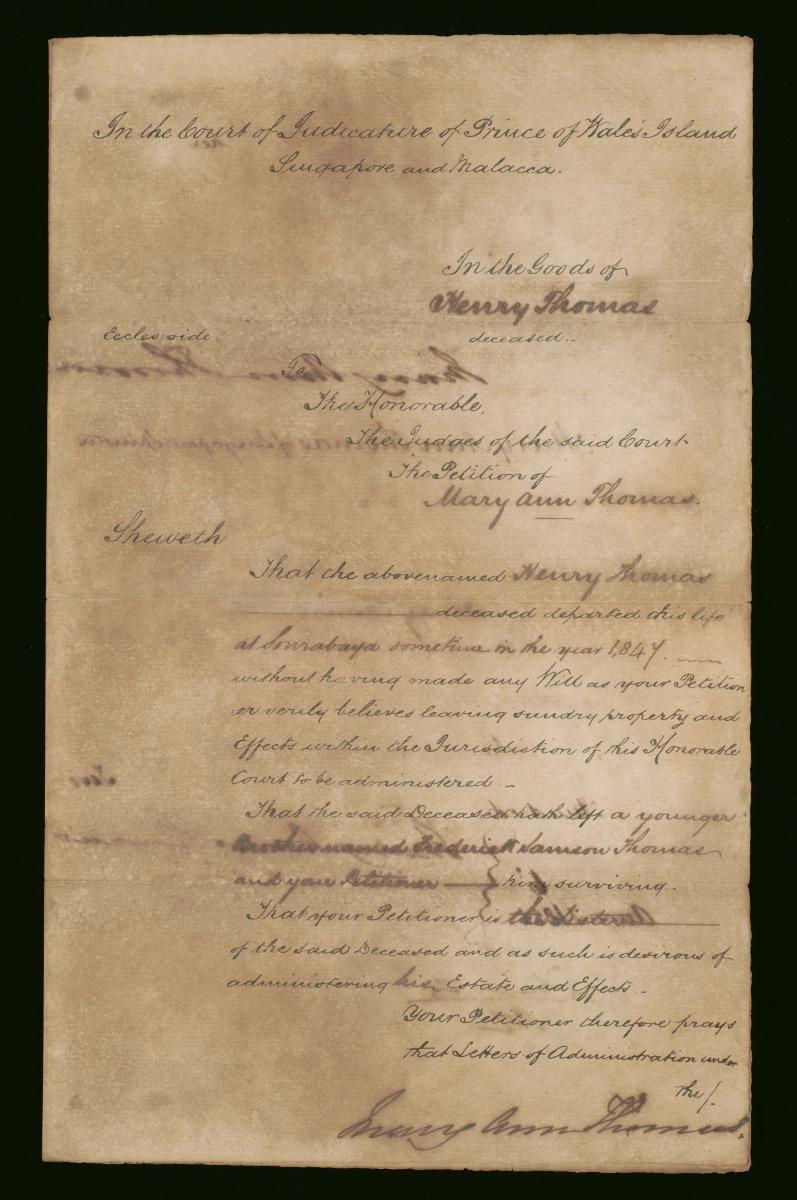 In the Court of Judicature of Prince of Wales Island
Singapore and Malacca.
In the Goods of
Henry Thomas
deceased.
Eccles: side
To
The Honorable,
The Judges of the said Court
The Petition of
Mary Ann Thomas.
Sheweth
That the abovenamed Henry Thomas
deceased departed this life
at Sourabaya sometime in the year 1,847.
without having made any Will as your Petition
er verily believes leaving sundry property and
Effects within the Jurisdiction of this Honorable
Court to be administered
That the said Deceased hath left a younger
Brother named Frederick Samson Thomas
and your Petitioner him surviving.
That your Petitioner is the Sister
of the said Deceased and as such is desirous of
administering his Estate and Effects.
Your Petitioner therefore prays
that Letters of Administration under
the /.
Mary Ann Thomas.